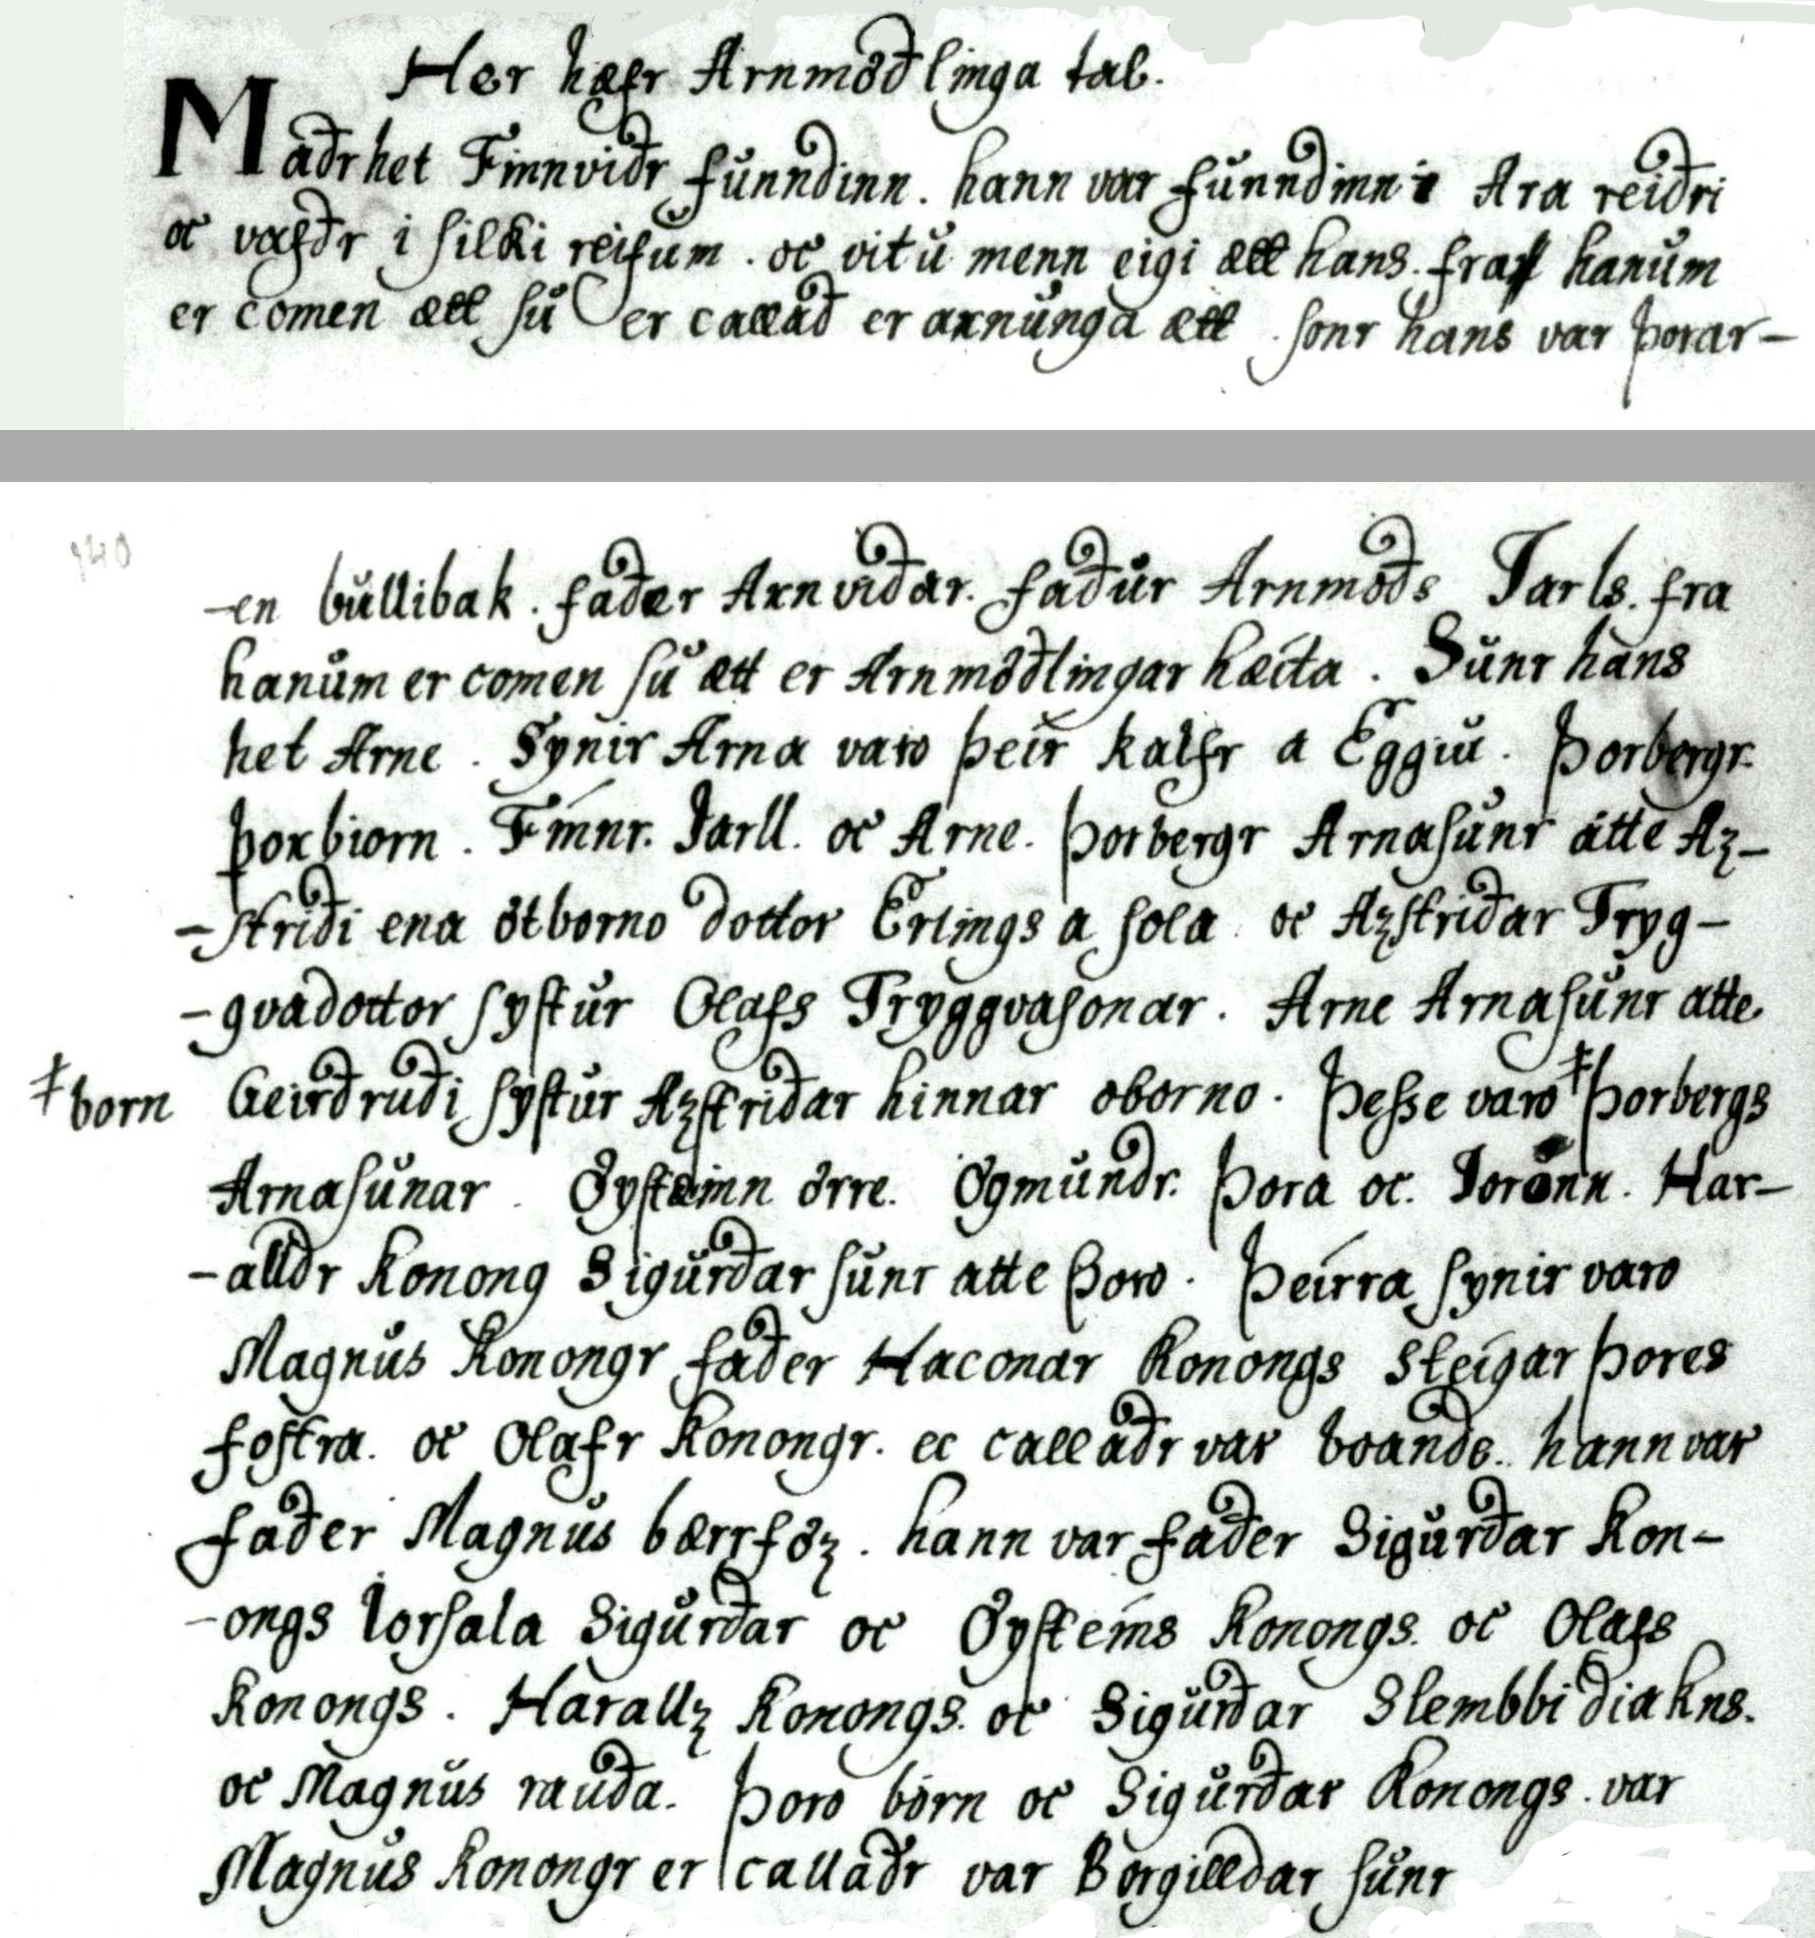 Her hæfr Arnmöðlinga tal.
Maðr het Finnviðr funndinn. hann var funndinn i Ara reiðri
oc vafðr i silki reifum. oc vitu menn eigi ætt hans. fra hanum
er comen ætt su er callað er arnunga ætt. sonr hans var Þorar-
-en bullibak. faðer Arnviðar. faður Arnmóðs Jarls. fra
hanum er comen su ætt er Arnmöðlingar hæita. Sunr hans
het Arne. Synir Arna varo þeir kalfr a Eggiu. Þorbergr.
þorbiorn. Finnr. Jarll. oc Arne. Þorbergr Arnasunr átte Az-
-striði ena ótborno dottor Erlings a sola. oc Azstriðar Tryg-
-gvadottor systur Olafs Tryggvasonar. Arne Arnasunr atte
‡born Geirðruði systur Azstriðar hinnar oborno. Þesse varo ‡ Þorbergs
Arnasunar. Öysteinn örre. Ögmundr. Þora oc. Jorunn. Har-
-alldr Konong Sigurðar sunr atte Þoro. Þeirra synir varo
Magnus Konongr faðer Haconar Konongs Steigar Þores
fostra. oc Olafr Konongr. er callaðr var boande. hann var
faðer Magnus bærrföz. hann var faðer Sigurðar Kon-
-ongs Iorsala Sigurðar oc Öysteins Konongs. oc Olafs
Konongs. Harallz Konongs. oc Sigurðar Slembbidiakns.
oc Magnus rauða. Þoro börn oc Sigurðar Konongs. var
Magnus Konongr er callaðr var Borgilldar sunr